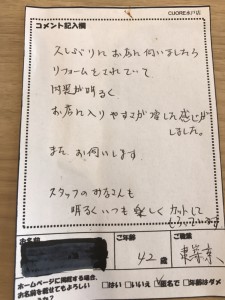 CUORE水戸店
コメント記入欄
久しぶりにお店に伺いましたら
リフォームをされていて
内装が明るく
お店に入りやすさが増した感じが
しました。
また お伺いします
スタッフのみなさんも
明るくいつも楽しくカットして
もらっています
お名前
ご年齢
42歳
ご職業
ホームページに掲載する場合、
お名前を載せてもよろしい
ですか?
□はい □いいえ ☑匿名で □年齢はダメ